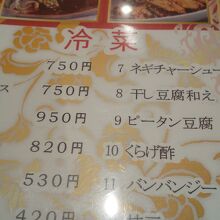 冷菜
750円 7 ネギチャーシュー
ス 750円 8 干し豆腐和え
950円 9 ピータン豆腐
820円 10 くらげ酢
530円 11 バンバンジー
420円